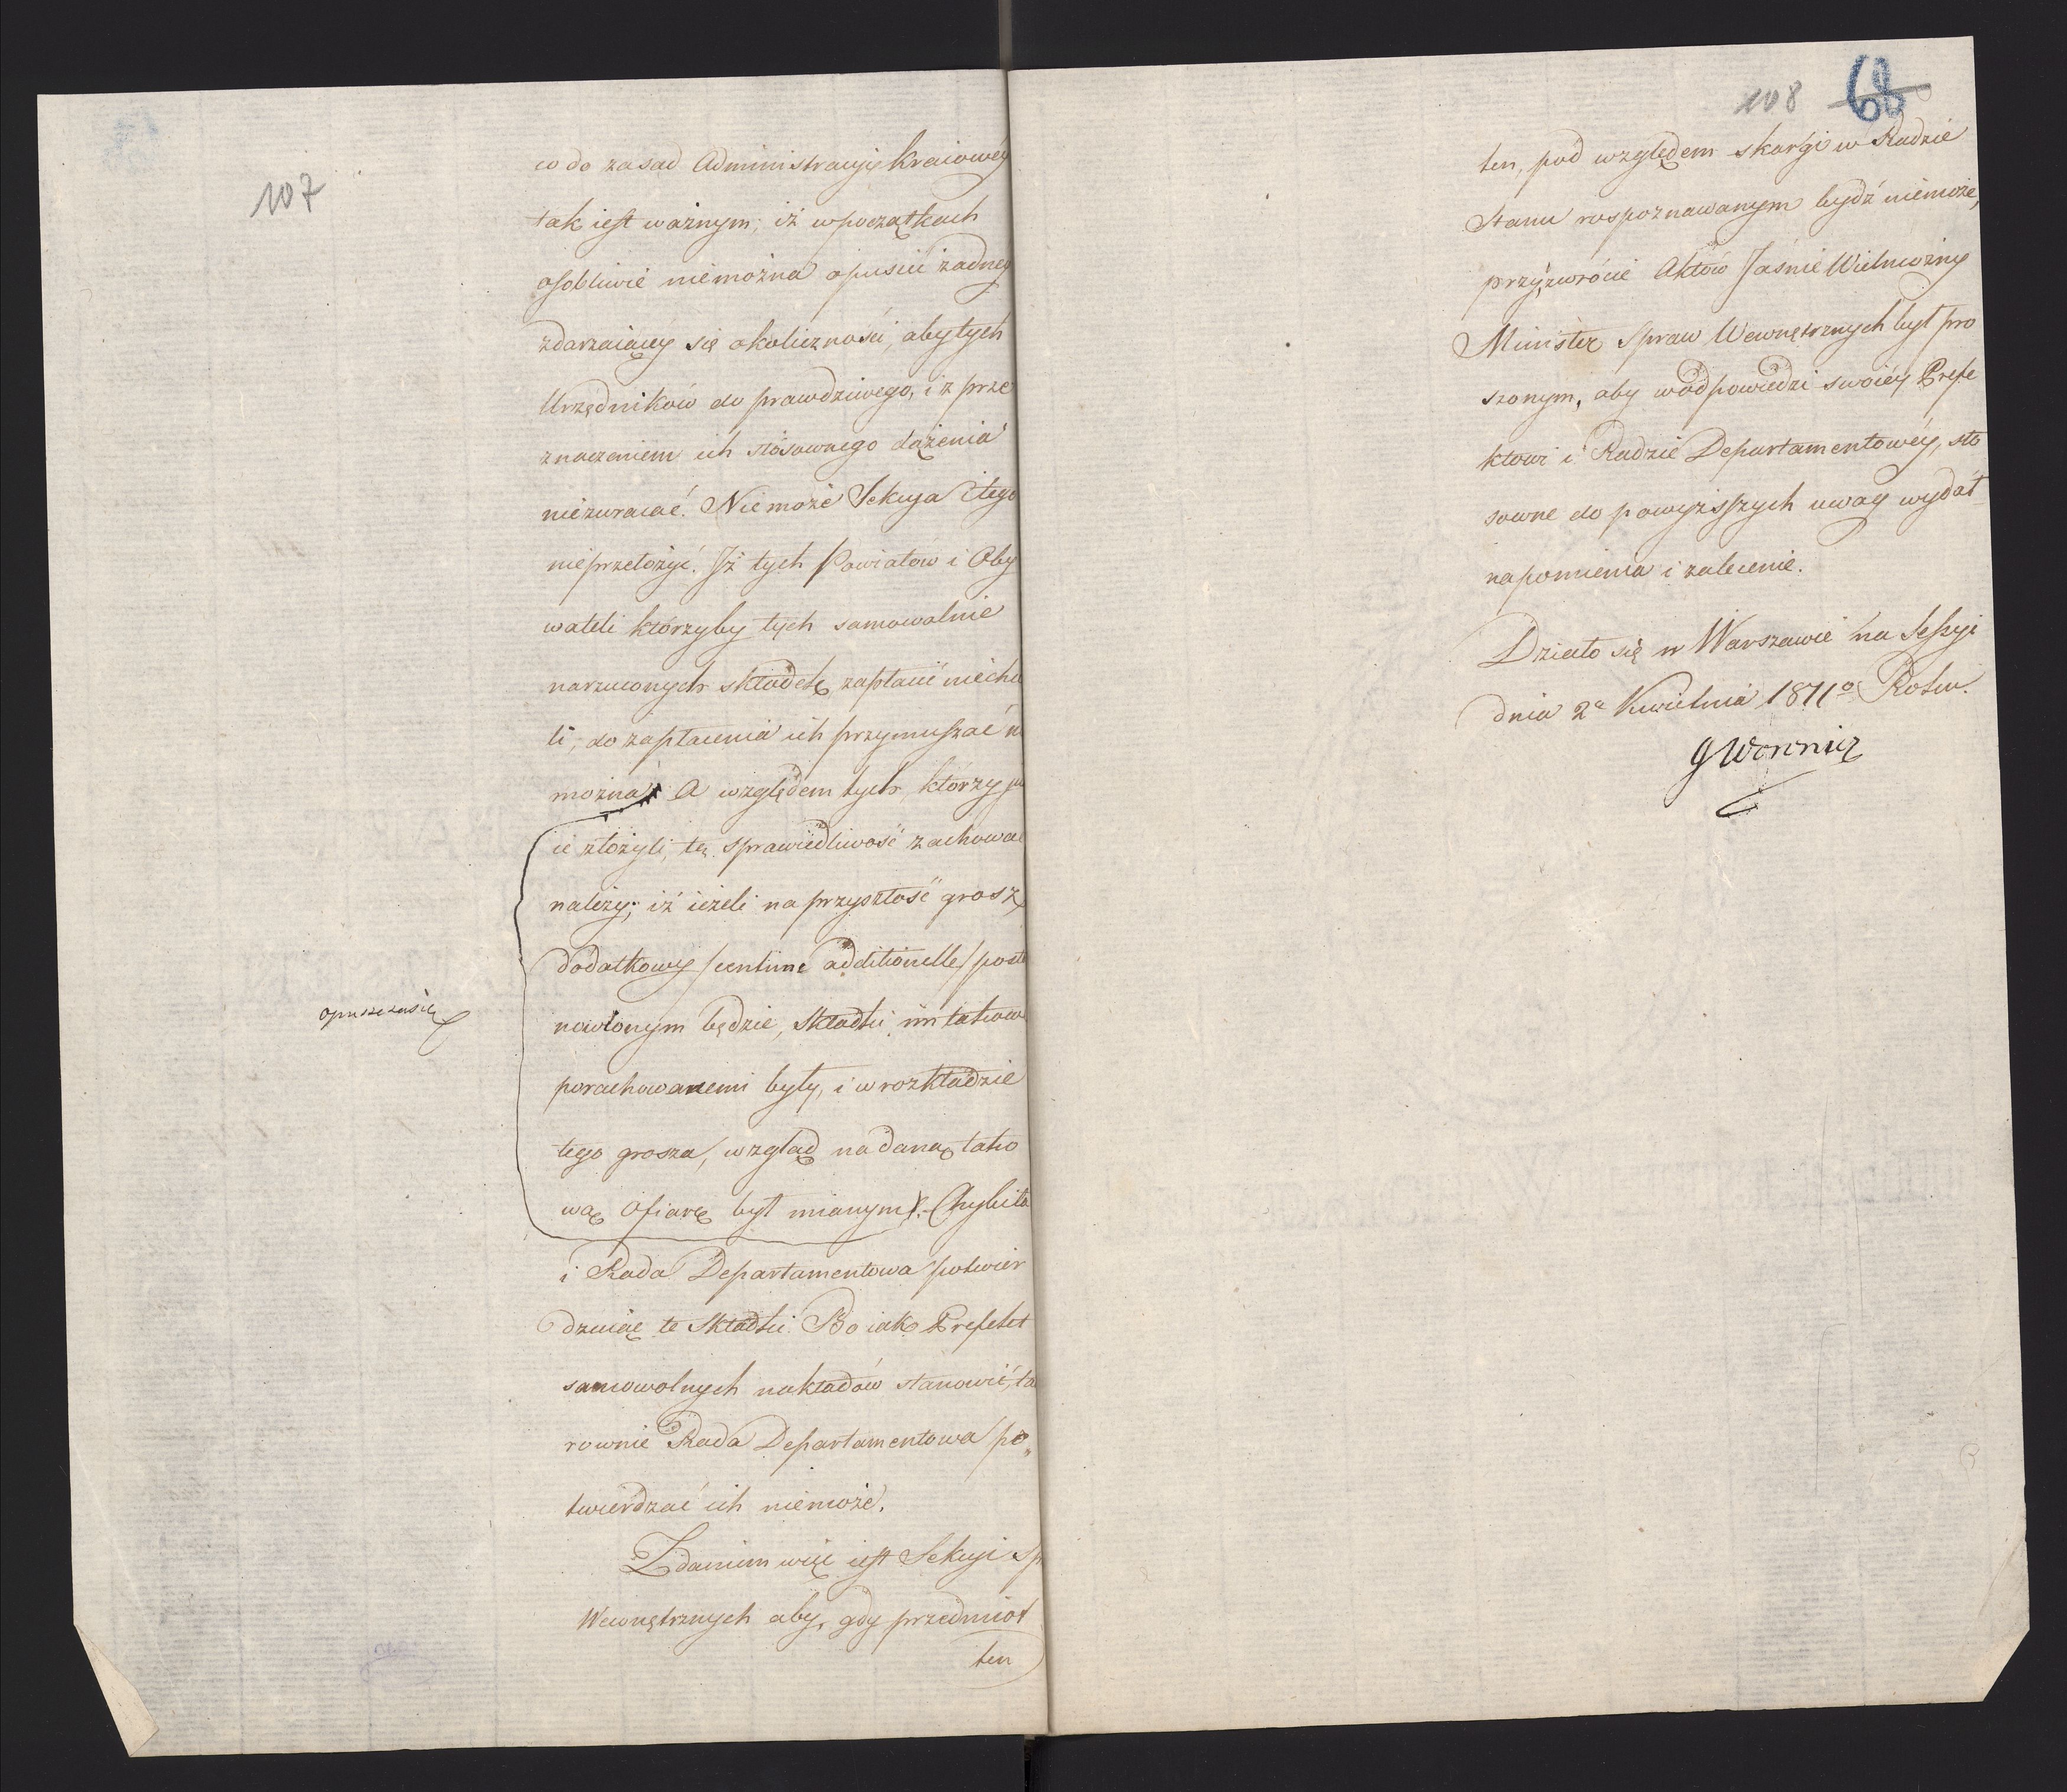 107
co do zasad Administracyi kraiowey
tak iest ważnym, iż w początkach
osobliwie niemożna opuścić żadney
zdarzaiącey się okoliczności, aby tych
Urzędników do prawdziwego, i z prze
znaczeniem ich stosownego dążenia
niezwracać. Niemoże Sekcya i tego
nieprzełożyć. Iż tych Powiatów i Oby
wateli którzyby tych samowolnie
narzuconych składek zapłacić niechci
li, do zapłacenia ich przymuszać n
można. A względem tych, którzy iu
ie złożyli, tę sprawiedliwość zachowac
należy; iż ieżeli na przyszłość grosz
dodatkowy /centime additionelle/ posta
nowionym będzie, składki im takow
porachowanemi były, i w rozkładzie
tego grosza, wzgląd na daną tako
wą ofiarę był mianym. Chybiła
opuszcza się
i Rada Departamentowa potwier
dzaiąc te składki. Bo iak Prefekt
samowolnych nakładów stanowić, ta
rownie Rada Departamentowa po„
twierdzać ich niemoże.
Zdaniem więc iest Sekcyi Sp
Wewnętrznych aby, gdy przedmiot
ten
108 68
ten, pod względem skargi w Radzie
Stanu rospoznawanym bydź niemoże,
przy zwrócie Aktów Jaśnie Wielmożny
Minister Spraw Wewnętrznych był pro
szonym, aby w odpowiedzi swoiéy Prefe
ktowi i Radzie Departamentowéy, sto
sowne do powyższych uwag wydał
napomnienia i zalecenie.
Działo się w Warszawie na Sessyi
dnia 2º Kwietnia 1811º Roku.